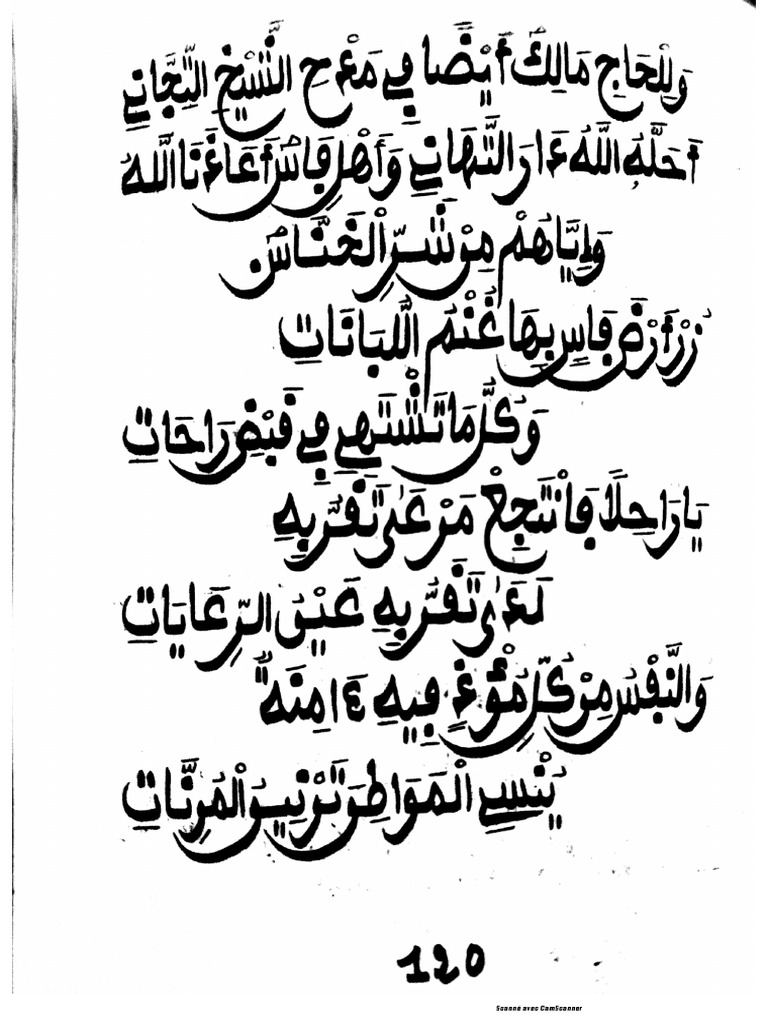 وَلِلْحَاجِ مَالِكْ أَيْضًا فِي مَدْحِ الشَّيْخِ التِّجَانِي
أَحَلَّهُ اللَّهُ دَارَ التَّهَانِي وَأَهْلِ فَاسَ أَعَاذَنَا اللَّهُ
وَإِيَّاهُمْ مِنْ شَرِّ الْخَنَّاسْ
زُرْ أَرْضَ فَاسٍ بِهَا غُنْمُ اللُّبَانَاتِ
وَكُلُّ مَا تَشْتَهِي فِي قَبْضِ رَاحَاتِ
يَا رَاحِلًا فَانْتَجِعْ مَرْعًى تَقَرُّ بِهِ
لَدَى تَقَرُّ بِهِ عَيْنُ الرِّعَايَاتِ
وَالنَّفْسُ مِنْ كُلِّ مُؤْذٍ فِيهِ ءَامِنَةٌ
يُنْسِي الْمَوَاطِنَ تَرْنِينُ الْمُرِنَّاتِ
120
Scanné avec CamScanner